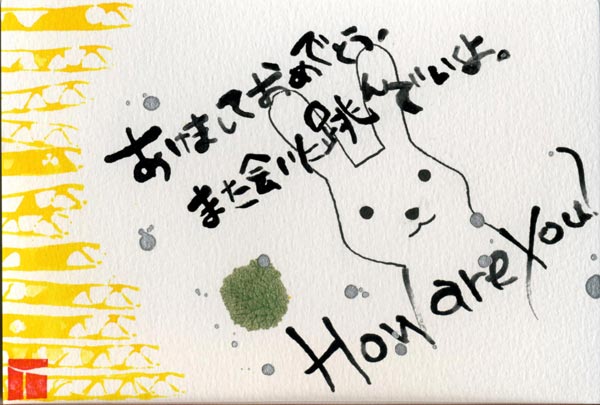 あけましておめでとう、
また会いに跳んでいくよ。
How are You?